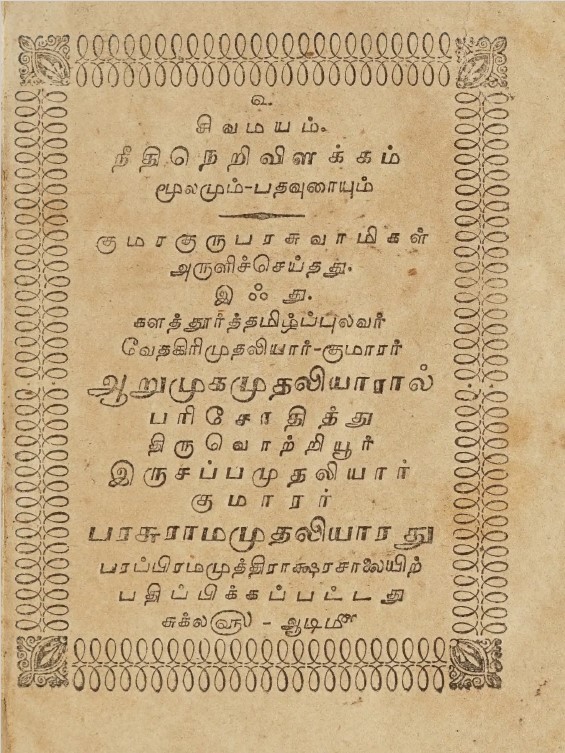 உ
சிவமயம்.
நீதிநெறிவிளக்கம்
மூலமும்-பதவுரையும்
குமரகுருபரசுவாமிகள்
அருளிச்செய்தது.
இஃது.
களத்தூர்த்தமிழ்ப்புலவர்
வேதகிரிமுதலியார்-குமாரர்
ஆறுமுகமுதலியாரால்
பரிசோதித்து
திருவொற்றியூர்
இருசப்பமுதலியார்
குமாரர்
பரசுராமமுதலியாரது
பரப்பிரமமுத்திராக்ஷரசாலையிற்
பதிப்பிக்கப்பட்டது
சுக்ல௵ - ஆடிமீ௴